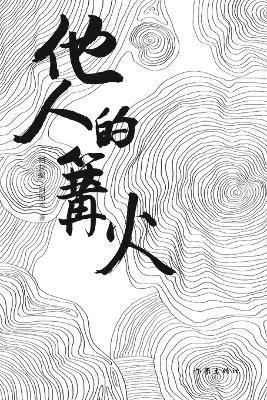 他人的篝火
作家出版社